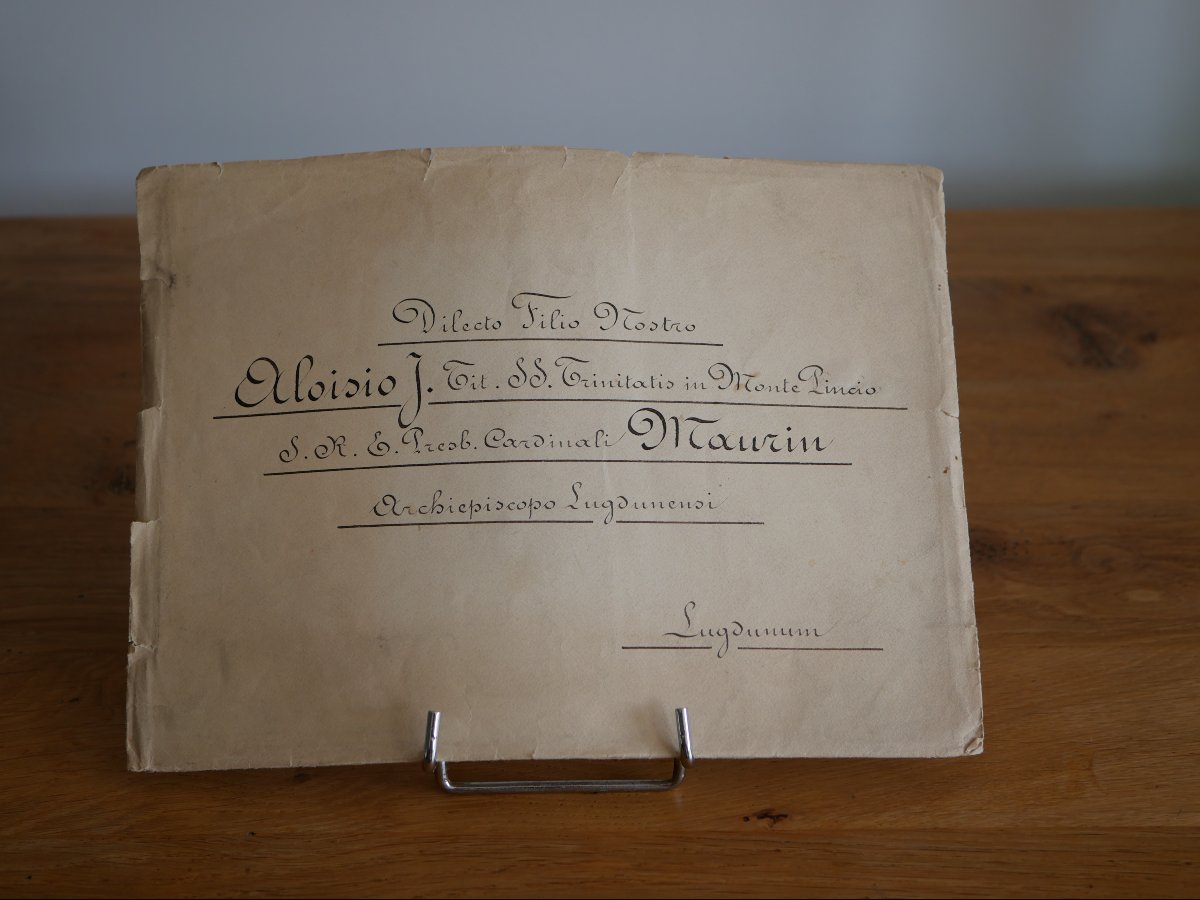 Dilecto Filio Nostro
Aloisio J. Tit. SS. Trinitatis in Monte Pincio
S. R. E. Presb. Cardinali Maurin
Archiepiscopo Lugdunensi
Lugdunum